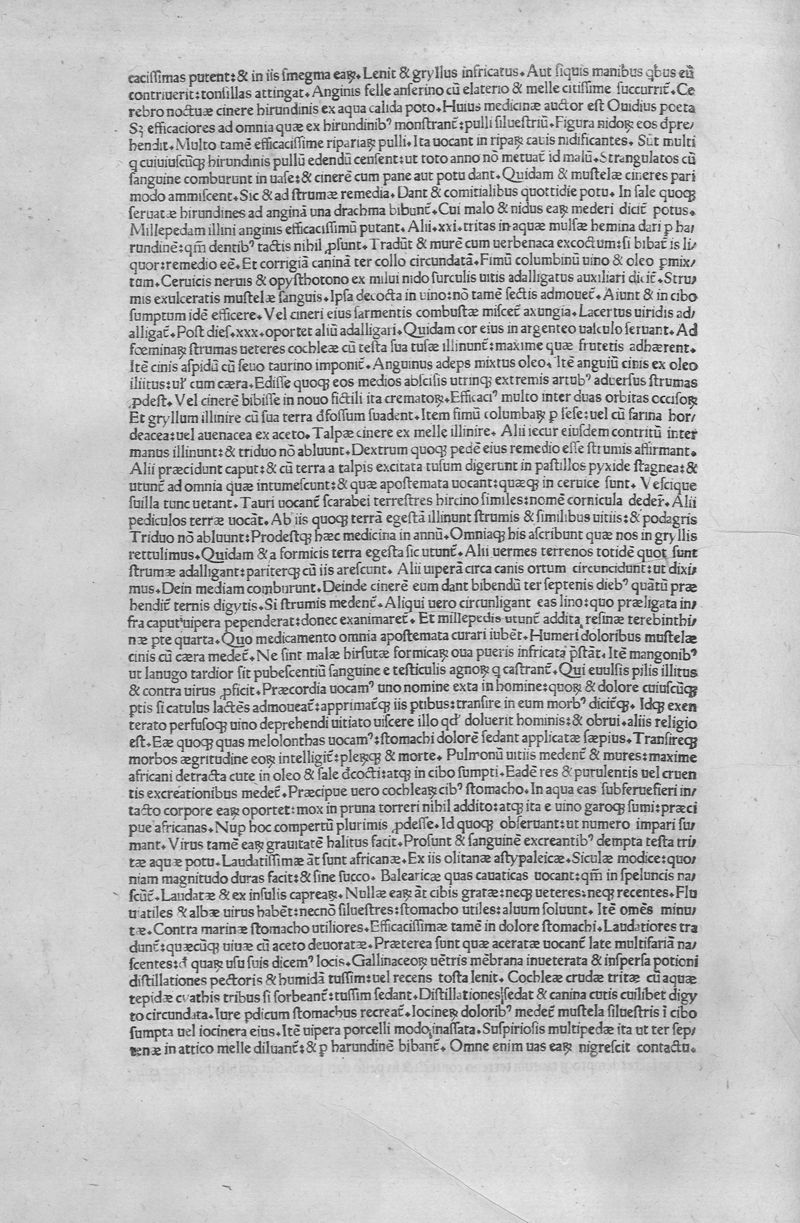 cacissimas putent:& in iis smegma eaꝝ. Lenit & gryllus infricatus. Aut siquis manibus qbus eũ
contriuerit:tonsillas attingat. Anginis felle anserino cũ elaterio & melle citissime succurrit̃. Ce
rebro noctuæ cinere hirundinis ex aqua calida poto. Huius medicinæ auctor est Ouidius poeta
Sꝫ efficaciores ad omnia quæ ex hirundinibꝰ monstrant̃:pulli siluestriũ. Figura nidoꝝ eos dpre/
hendit. Multo tamẽ efficacissime ripariaꝝ pulli. Ita uocant in ripaꝝ cauis nidificantes. Sũt multi
q cuiuiuscũꝗ hirundinis pullũ edendũ censent:ut toto anno nõ metuat̃ id malũ. Strangulatos cũ
sanguine comburunt in uase:& cinerẽ cum pane aut potu dant. Quidam & mustelæ cineres pari
modo ammiscent. Sic & ad strumæ remedia. Dant & comitialibus quottidie potu. In sale quoꝗ
seruatæ hirundines ad anginã una drachma bibunt̃. Cui malo & nidus eaꝝ mederi dicit̃ potus.
Millepedam illini anginis efficacissimũ putant. Alii.xxi.tritas in aquæ mulsæ hemina dari p ha/
rundinẽ:qm̃ dentibꝰ tactis nihil ꝓsunt. Tradũt & murẽ cum uerbenaca excoctum:si bibat̃ is li/
quor:remedio eẽ. Et corrigiã caninã ter collo circundatã. Fimũ columbinũ uino & oleo pmix/
tum. Ceruicis neruis & opysthotono ex milui nido surculis uitis adalligatus auxiliari dicit̃. Stru/
mis exulceratis mustelæ sanguis. Ipsa decocta in uino:nõ tamẽ sectis admouet̃. Aiunt & in cibo
sumptum idẽ efficere. Vel cineri eius sarmentis combustæ miscet̃ axungia. Lacertus uiridis ad/
alligat̃. Post dies.xxx.oportet aliũ adalligari. Quidam cor eius in argenteo uasculo seruant. Ad
fœminaꝝ strumas ueteres cochleæ cũ testa sua tusæ illinunt̃:maxime quæ frutetis adhærent.
Itẽ cinis aspidũ cũ seuo taurino imponit̃. Anguinus adeps mixtus oleo. Itẽ anguiũ cinis ex oleo
illitus:ul̃ cum cæra. Edisse quoꝗ eos medios abscisis utrinꝗ extremis artubꝰ aduersus strumas
ꝓdest. Vel cinerẽ bibisse in nouo fictili ita crematoꝝ. Efficaciꝰ multo inter duas orbitas occisoꝝ
Et gryllum illinire cũ sua terra dfossum suadent. Item fimũ columbaꝝ p sese:uel cũ farina hor/
deacea:uel auenacea ex aceto. Talpæ cinere ex melle illinire. Alii iecur eiusdem contritũ inter
manus illinunt:& triduo nõ abluunt. Dextrum quoꝗ pedẽ eius remedio esse strumis affirmant.
Alii præcidunt caput:& cũ terra a talpis excitata tusum digerunt in pastillos pyxide stagnea:&
utunt̃ ad omnia quæ intumescunt:& quæ apostemata uocant:quæꝗ in ceruice sunt. Vescique
suilla tunc uetant. Tauri uocant̃ scarabei terrestres hircino similes:nomẽ cornicula deder̃. Alii
pediculos terræ uocãt. Ab iis quoꝗ terrã egestã illinunt strumis & similibus uitiis:& podagris
Triduo nõ abluunt:Prodestꝗ hæc medicina in annũ. Omniaꝗ his ascribunt quæ nos in gryllis
rettulimus. Quidam & a formicis terra egesta sic utunt̃. Alii uermes terrenos totidẽ quot sunt
strumæ adalligant:pariterꝗ cũ iis arescunt. Alii uiperã circa canis ortum circuncidunt:ut dixi/
mus. Dein mediam comburunt. Deinde cinerẽ eum dant bibendũ ter septenis diebꝰ quãtũ præ
hendit̃ ternis digytis. Si strumis medent̃. Aliqui uero circunligant eas lino:quo præligata in/
fra caput uipera pependerat:donec exanimaret̃. Et millepedis utunt̃ addita resinæ terebinthi/
næ pte quarta. Quo medicamento omnia apostemata curari iubẽt. Humeri doloribus mustelæ
cinis cũ cæra medet̃. Ne sint malæ hirsutæ formicaꝝ oua pueris infricata p̃stãt. Itẽ mangonibꝰ
ut lanugo tardior sit pubescentiũ sanguine e testiculis agnoꝝ q castrant̃. Qui euulsis pilis illitus
& contra uirus ꝓficit. Præcordia uocamꝰ uno nomine exta in homine:quoꝝ & dolore cuiuscũꝗ
ptis si catulus lactẽs admoueat̃:apprimat̃ꝗ iis ptibus:transire in eum morbꝰ dicit̃ꝗ. Idꝗ exen
terato perfusoꝗ uino deprehendi uitiato uiscere illo qd̃ doluerit hominis:& obrui.aliis religio
est. Eæ quoꝗ quas melolonthas uocamꝰ:stomachi dolorẽ sedant applicatæ sæpius. Transireꝗ
morbos ægritudine eoꝝ intelligit̃:pleꝝꝗ & morte. Pulmonũ uitiis medent̃ & mures:maxime
africani detracta cute in oleo & sale dcocti:atꝗ in cibo sumpti. Eadẽ res & purulentis uel cruen
tis excreationibus medet̃. Præcipue uero cochleaꝝ cibꝰ stomacho. In aqua eas subferuefieri in/
tacto corpore eaꝝ oportet:mox in pruna torreri nihil addito:atꝗ ita e uino garoꝗ sumi:præci
pue africanas. Nup hoc compertũ plurimis ꝓdesse. Id quoꝗ obseruant:ut numero impari su/
mant. Virus tamẽ eaꝝ grauitatẽ halitus facit. Prosunt & sanguinẽ excreantibꝰ dempta testa tri/
tæ aquæ potu. Laudatissimæ ãt sunt africanæ. Ex iis olitanæ astypaleicæ. Siculæ modice:quo/
niam magnitudo duras facit:& sine succo. Balearicæ quas cauaticas uocant:qm̃ in speluncis na/
scũt̃. Laudatæ & ex insulis capreaꝝ. Nullæ eaꝝ ãt cibis gratæ:neꝗ ueteres:neꝗ recentes. Flu
uiatiles & albæ uirus habẽt:necnõ siluestres:stomacho utiles:aluum soluunt. Itẽ omẽs minu/
tæ. Contra marinæ stomacho utiliores. Efficacissimæ tamẽ in dolore stomachi. Laudatiores tra
dunt̃:quæcũꝗ uiuæ cũ aceto deuoratæ. Præterea sunt quæ aceratæ uocant̃ late multifariã na/
scentes:d̃ quaꝝ usu suis dicemꝰ locis. Gallinaceoꝝ uẽtris mẽbrana inueterata & inspersa potioni
distillationes pectoris & humidã tussim:uel recens tosta lenit. Cochleæ crudæ tritæ cũ aquæ
tepidæ cyathis tribus si sorbeant̃:tussim sedant. Distillationes sedat & canina cutis cuilibet digy
to circundata. Iure pdicum stomachus recreat̃. Iocineꝝ doloribꝰ medet̃ mustela siluestris ĩ cibo
sumpta uel iocinera eius. Itẽ uipera porcelli modo inassata. Suspiriosis multipedæ ita ut ter sep/
tenæ in attico melle diluant̃:& p harundinẽ bibant̃. Omne enim uas eaꝝ nigrescit contactu.